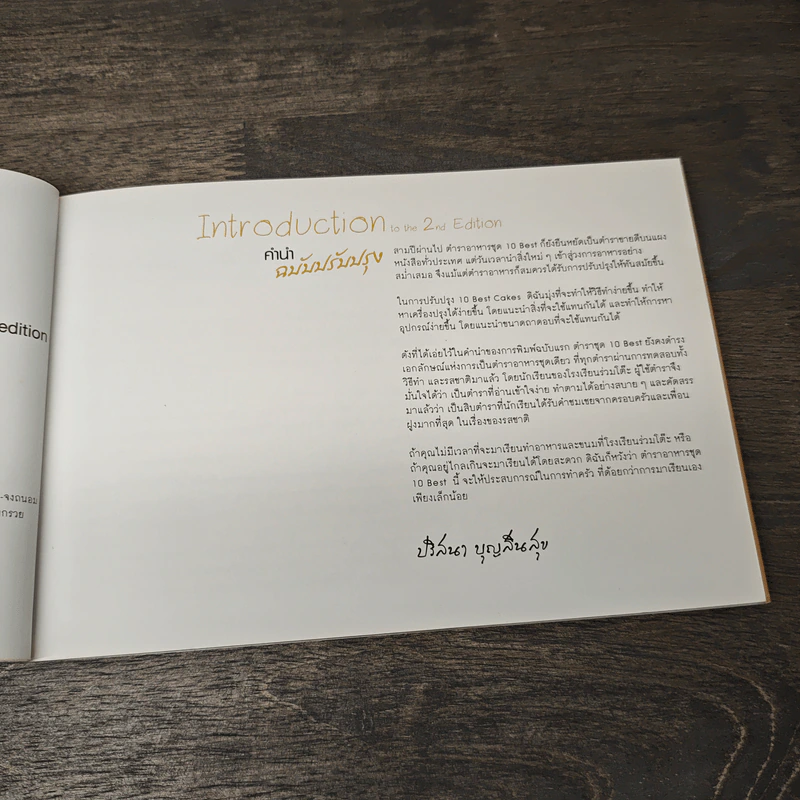 edition
-จงถนอม
กรวย
Introduction to the 2nd Edition
คำนำ
ฉบับปรับปรุง
สามปีผ่านไป ตำราอาหารชุด 10 Best ก็ยังยืนหยัดเป็นตำราขายดีบนแผง
หนังสือทั่วประเทศ แต่วันเวลานำสิ่งใหม่ ๆ เข้าสู่วงการอาหารอย่าง
สม่ำเสมอ จึงแม้แต่ตำราอาหารก็สมควรได้รับการปรับปรุงให้ทันสมัยขึ้น
ในการปรับปรุง 10 Best Cakes ดิฉันมุ่งที่จะทำให้วิธีทำง่ายขึ้น ทำให้
หาเครื่องปรุงได้ง่ายขึ้น โดยแนะนำสิ่งที่จะใช้แทนกันได้ และทำให้การหา
อุปกรณ์ง่ายขึ้น โดยแนะนำขนาดถาดอบที่จะใช้แทนกันได้
ดังที่ได้เอ่ยไว้ในคำนำของการพิมพ์ฉบับแรก ตำราชุด 10 Best ยังคงดำรง
เอกลักษณ์แห่งการเป็นตำราอาหารชุดเดียว ที่ทุกตำราผ่านการทดสอบทั้ง
วิธีทำ และรสชาติมาแล้ว โดยนักเรียนของโรงเรียนร่วมโต๊ะ ผู้ใช้ตำราจึง
มั่นใจได้ว่า เป็นตำราที่อ่านเข้าใจง่าย ทำตามได้อย่างสบาย ๆ และคัดสรร
มาแล้วว่า เป็นสิบตำราที่นักเรียนได้รับคำชมเชยจากครอบครัวและเพื่อน
ฝูงมากที่สุด ในเรื่องของรสชาติ
ถ้าคุณไม่มีเวลาที่จะมาเรียนทำอาหารและขนมที่โรงเรียนร่วมโต๊ะ หรือ
ถ้าคุณอยู่ไกลเกินจะมาเรียนได้โดยสะดวก ดิฉันก็หวังว่า ตำราอาหารชุด
10 Best นี้ จะให้ประสบการณ์ในการทำครัว ที่ด้อยกว่าการมาเรียนเอง
เพียงเล็กน้อย
ปริสนา บุญสินสุข